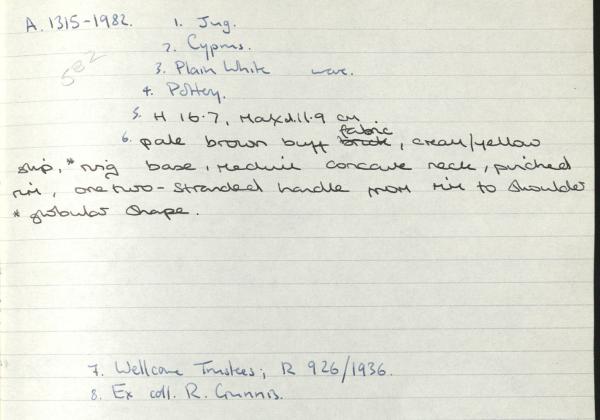 A. 1315-1982. 1. Jug.
2. Cyprus.
582
3. Plain White ware.
4. Pottery.
5. H 16.7, Maxd.11.9 cm.
fabric
6. pale brown buff, cream/yellow
slip, * ring base, medium concave neck, pinched
rim, one two-stranded handle from rim to shoulder
* globular shape.
7. Wellcome Trustees; R 926/1936.
8. Ex coll. R. Gunnis.